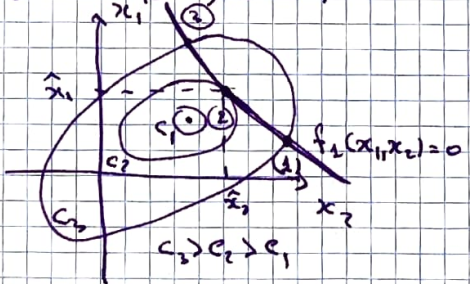 x₁
③
x̂₁
C₁
②
f₁(x₁, x₂) = 0
C₂
①
x̂₂
x₂
C₃
C₃ > C₂ > C₁